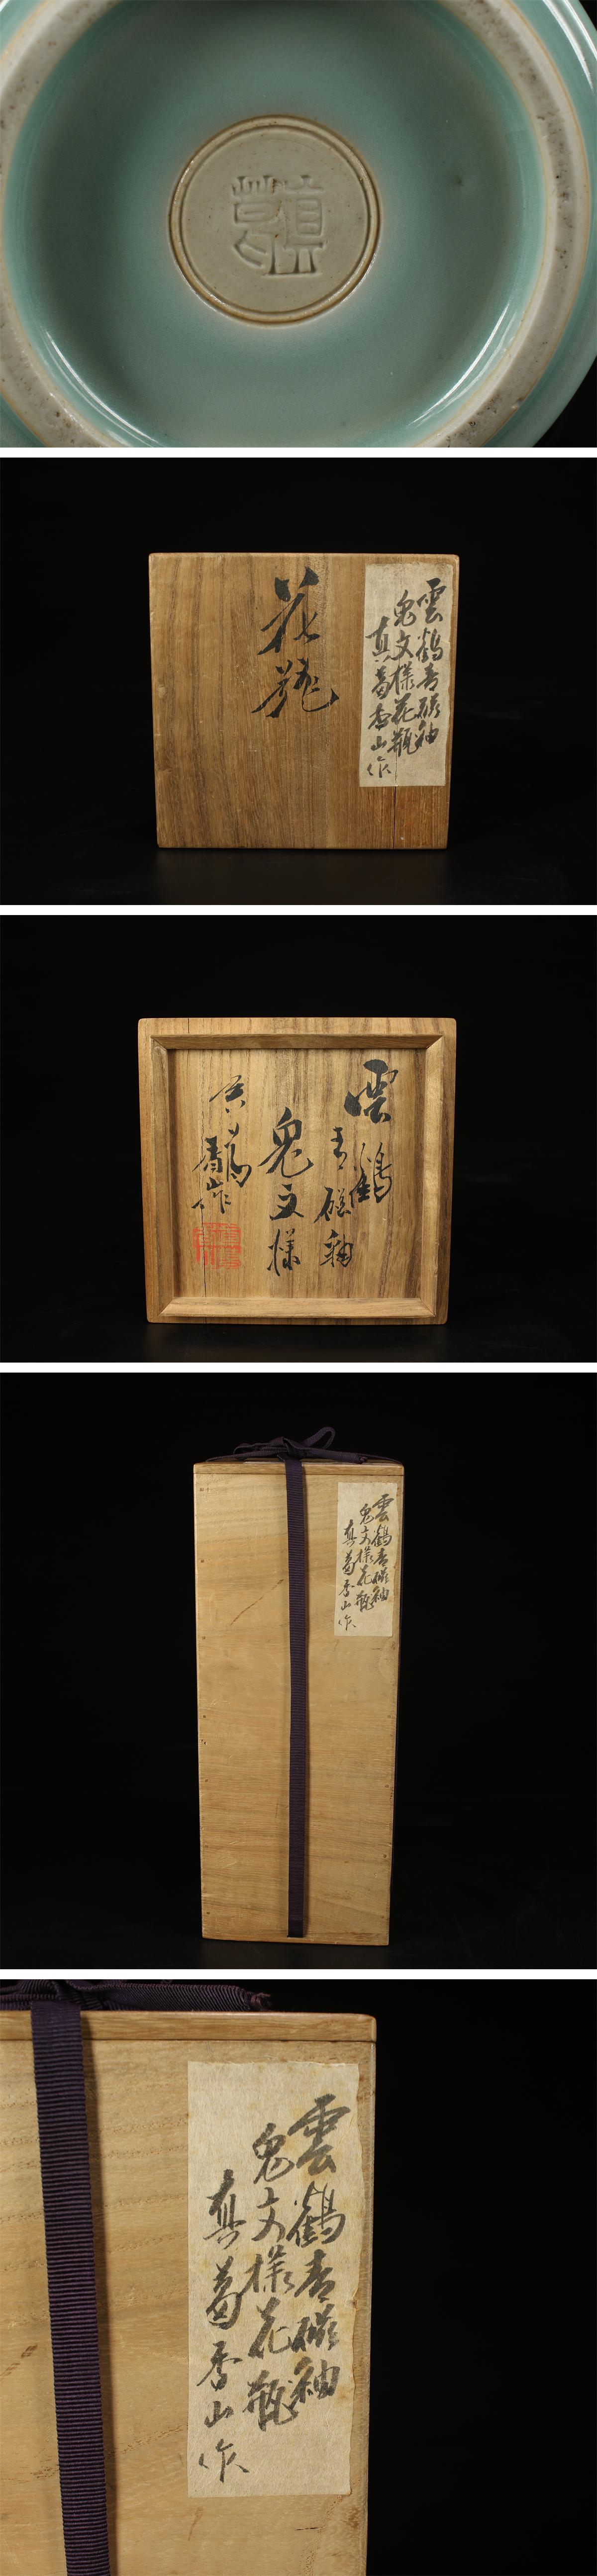 真葛
花瓶
雲鶴青磁釉
兎文様花瓶
真葛香山作
雲鶴
青磁釉
兎文様
真葛
香山作
雲鶴青磁釉
兎文様花瓶
真葛香山作
雲鶴青磁釉
兎文様花瓶
真葛香山作